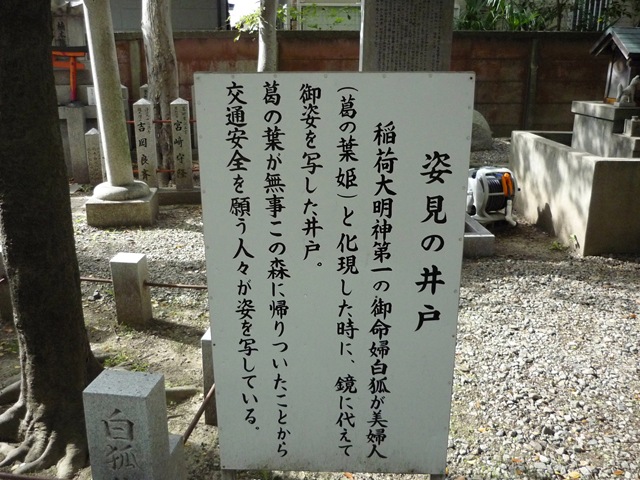 姿見の井戸
稲荷大明神第一の御命婦白狐が美婦人
(葛の葉姫)と化現した時に、鏡に代えて
御姿を写した井戸。
葛の葉が無事この森に帰りついたことから
交通安全を願う人々が姿を写している。
宮崎守隆
吉岡良斎
白狐